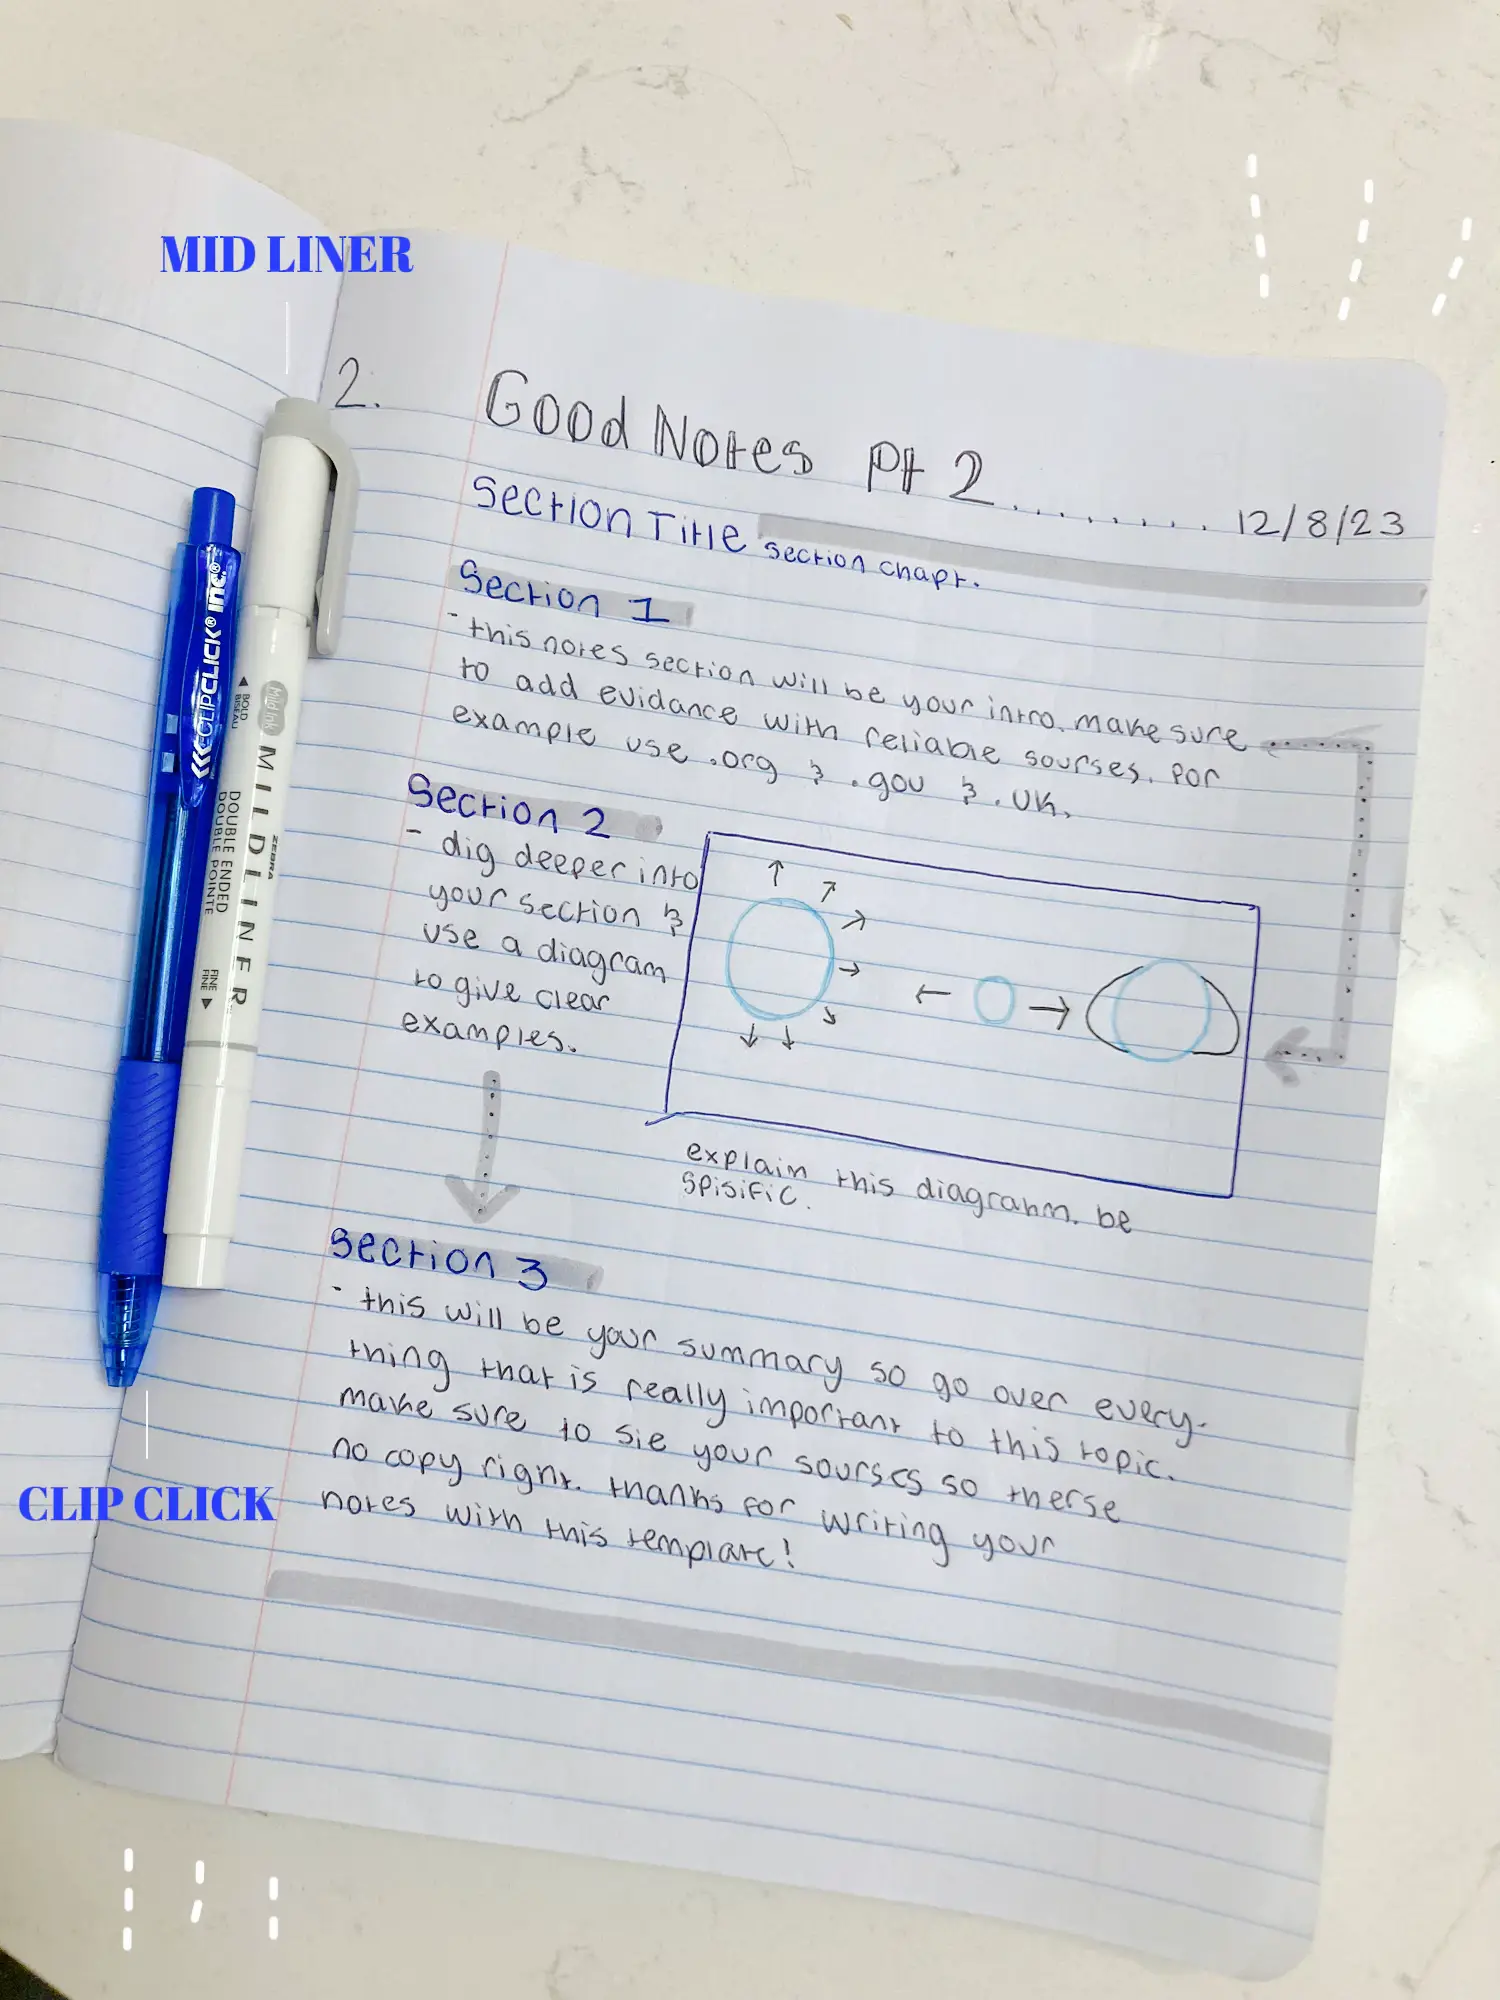 MID LINER
2.
Good Notes Pt 2 ........ 12/8/23
Section Title section chapt.
Section 1
- this notes section will be your intro. make sure
to add evidance with reliable sourses. For
example use .org & .gov & .uk.
Section 2
- dig deeper into
your section &
use a diagram
to give clear
examples.
explain this diagrahm. be
spisific.
Section 3
- this will be your summary so go over every-
thing that is really important to this topic.
make sure to sie your sourses so therse
no copy right. thanks for writing your
notes with this template!
CLIP CLICK
CLIPCLICK® inc.®
◀ BOLD
BISEAU
Mild ink
MILDLINER
ZEBRA
DOUBLE ENDED
DOUBLE POINTE
FINE
FINE ▶